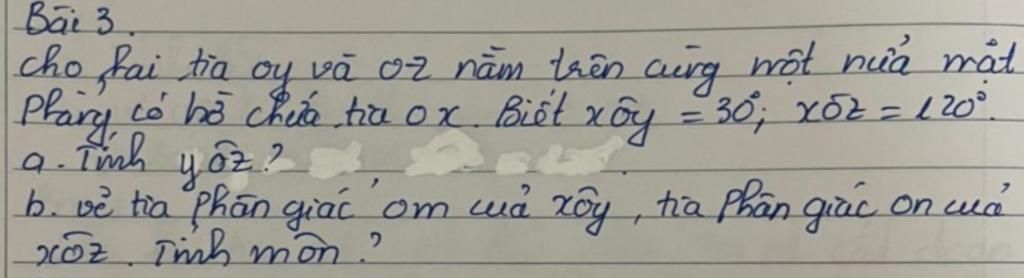 Bài 3.
cho hai tia oy và oz nằm trên cùng một nửa mặt
phẳng có bờ chứa tia ox. Biết xôy = 30°; xôz = 120°.
a. Tính yôz?
b. vẽ tia phân giác om của xôy, tia phân giác on của
xôz. Tính môn?